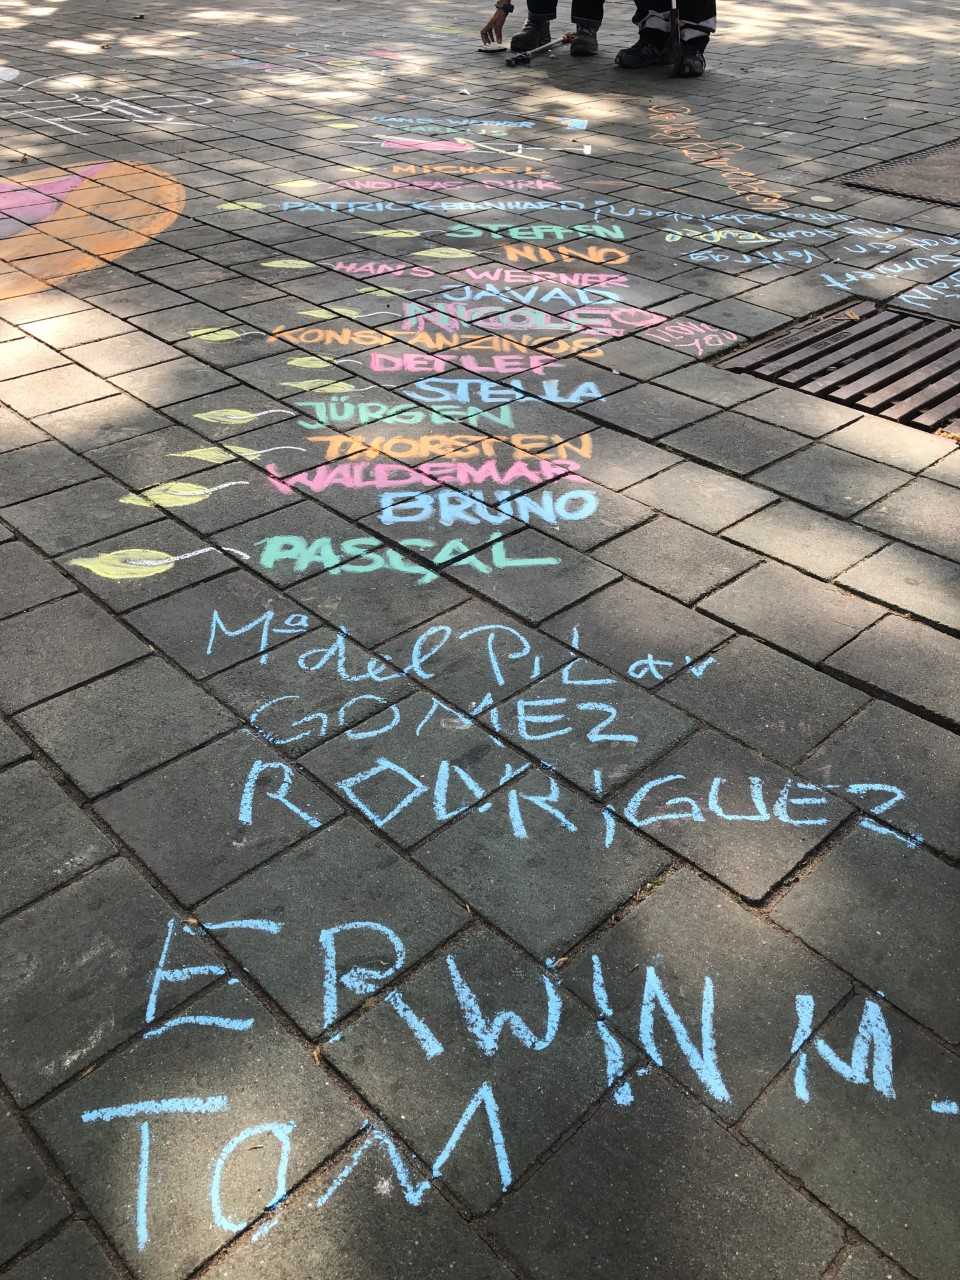 HANS-WERNER
MARKUS
MICHAEL
ANDREAS-DIRK
PATRICK-BERNHARD
STEFFEN
NINO
HANS-WERNER
JAVAD
NICOLE
KONSTANZINOS
DETLEF
STELLA
JÜRGEN
THORSTEN
WALDEMAR
BRUNO
PASCAL
Mª del PiLar
GOMEZ
RODRiGUEZ
ERWIN M.
TOM